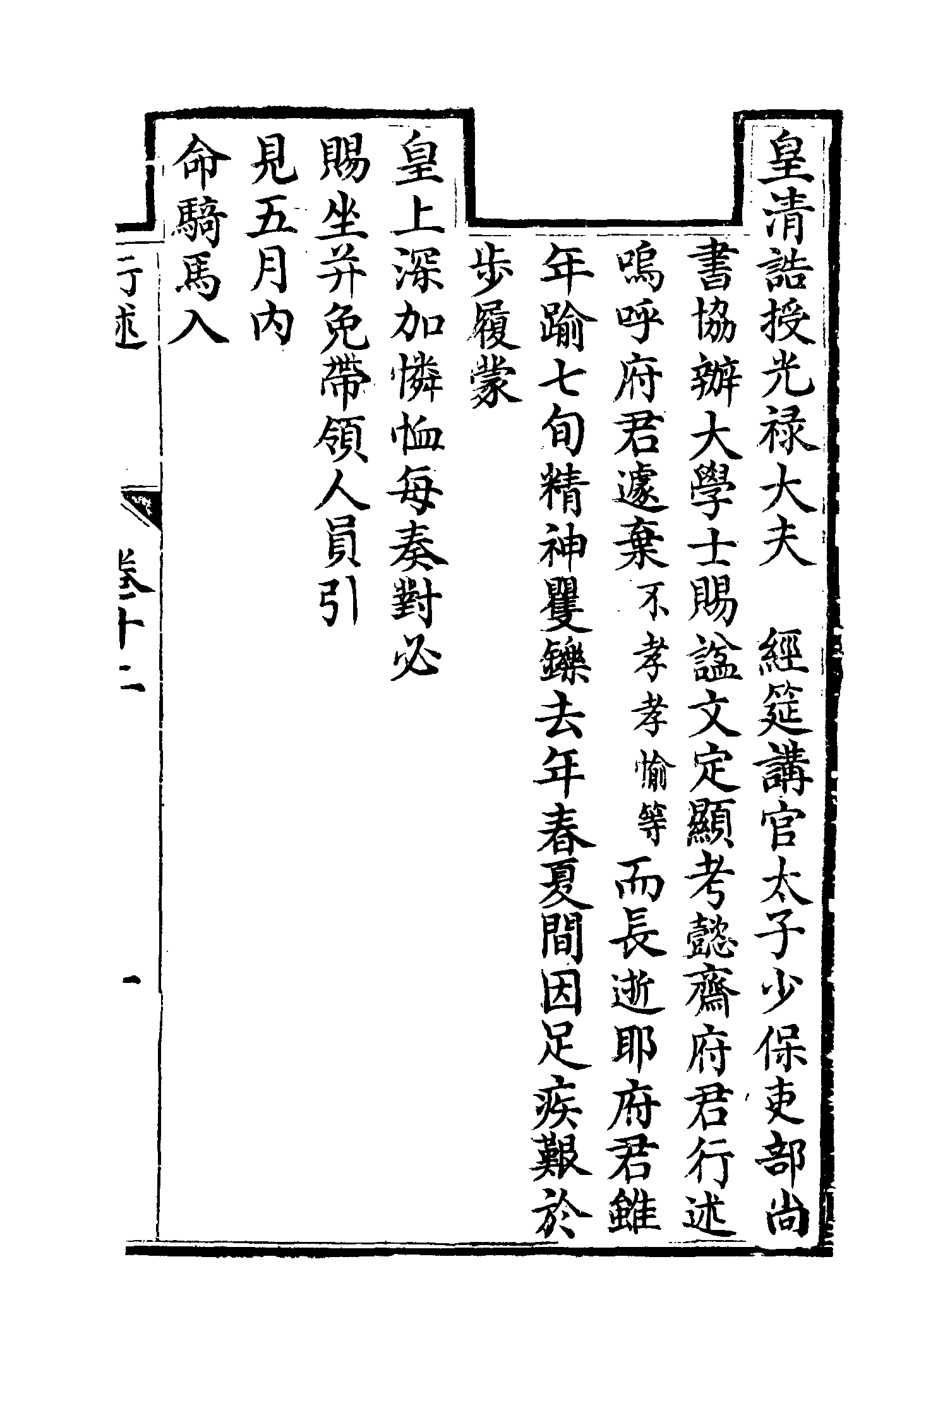 皇清誥授光禄大夫　經筵講官太子少保吏部尚
書協辦大學士賜謚文定顯考懿齋府君行述
嗚呼府君遽棄不孝孝愉等而長逝耶府君雖
年踰七旬精神矍鑠去年春夏間因足疾艱於
步履蒙
皇上深加憐恤每奏對必
賜坐并免帶領人員引
見五月内
命騎馬入
行述
卷十二
一